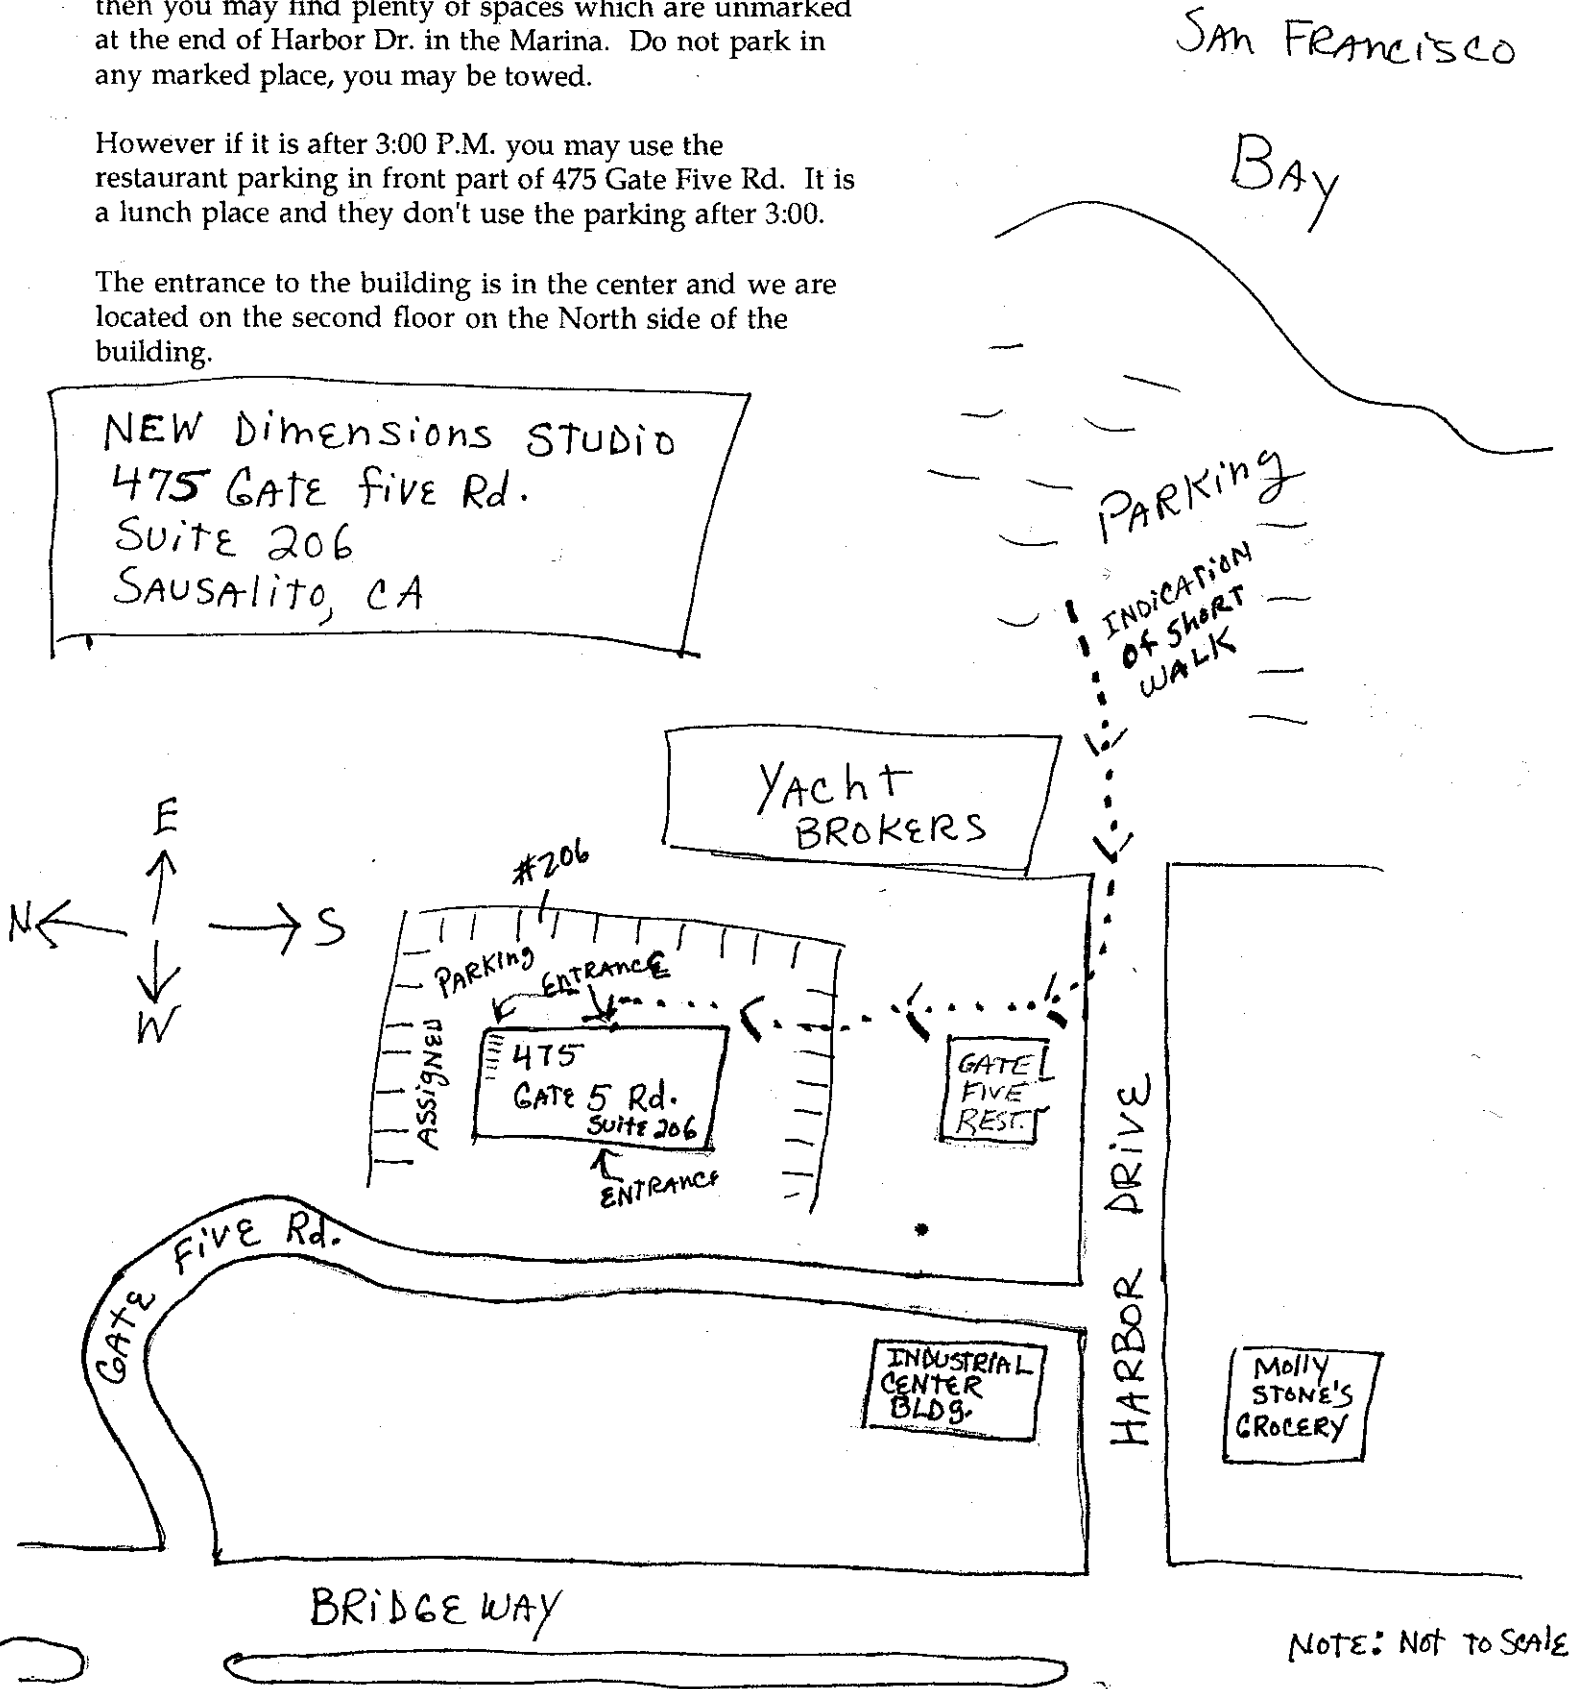 then you may find plenty of spaces which are unmarked
at the end of Harbor Dr. in the Marina. Do not park in
any marked place, you may be towed.
However if it is after 3:00 P.M. you may use the
restaurant parking in front part of 475 Gate Five Rd. It is
a lunch place and they don't use the parking after 3:00.
The entrance to the building is in the center and we are
located on the second floor on the North side of the
building.
SAn FRAnciSCO
BAy
NEW DimEnsions STUDiO
475 GATE fivE Rd.
SuitE 206
SAUSAlito, CA
PARKing
INDiCATiON
Of ShORT
WALK
YAcht
BROKERS
E
N
S
W
#206
PARKing
ENTRANCE
ASSIGNED
475
GATE 5 Rd.
SuitE 206
ENTRANCE
GATE
FIVE
REST.
GATE FivE Rd.
HARBOR DRiVE
INDUSTRIAL
CENTER
BLDg.
Molly
STONE'S
GROCERY
BRiDGEWAY
NOTE: Not to ScAlE